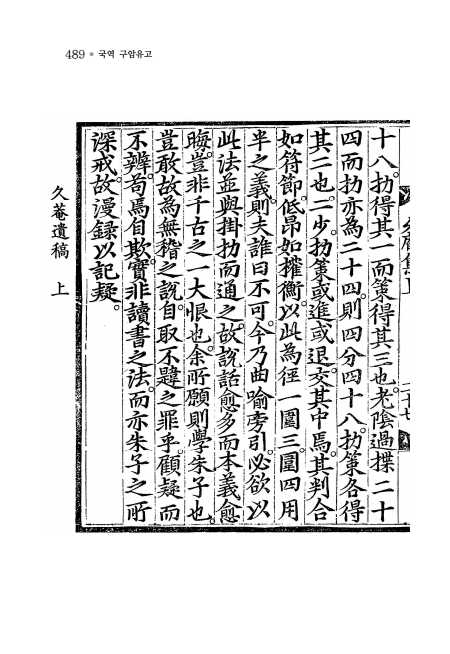 489 ● 국역 구암유고
十八。扐得其一而策得其三也。老陰過揲二十
四而扐亦為二十四。則四分四十八。扐策各得
其二也。二少。扐策或進或退。交其中焉。其判合
如符節。低昂如權衡。以此為徑一圍三。圍四用
半之義。則夫誰曰不可。今乃曲喻旁引。必欲以
此法並與掛扐而通之。故說話愈多而本義愈
晦。豈非千古之一大恨也。余所願則學朱子也。
豈敢故為無稽之說。自取不韙之罪乎。顧疑而
不辨。苟焉自欺。實非讀書之法。而亦朱子之所
深戒。故漫錄以記疑。
久菴遺稿 上